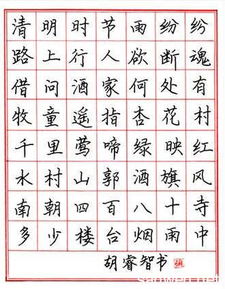 清明时节雨纷纷
路上行人欲断魂
借问酒家何处有
牧童遥指杏花村
千里莺啼绿映红
水村山郭酒旗风
南朝四百八十寺
多少楼台烟雨中
胡睿智书